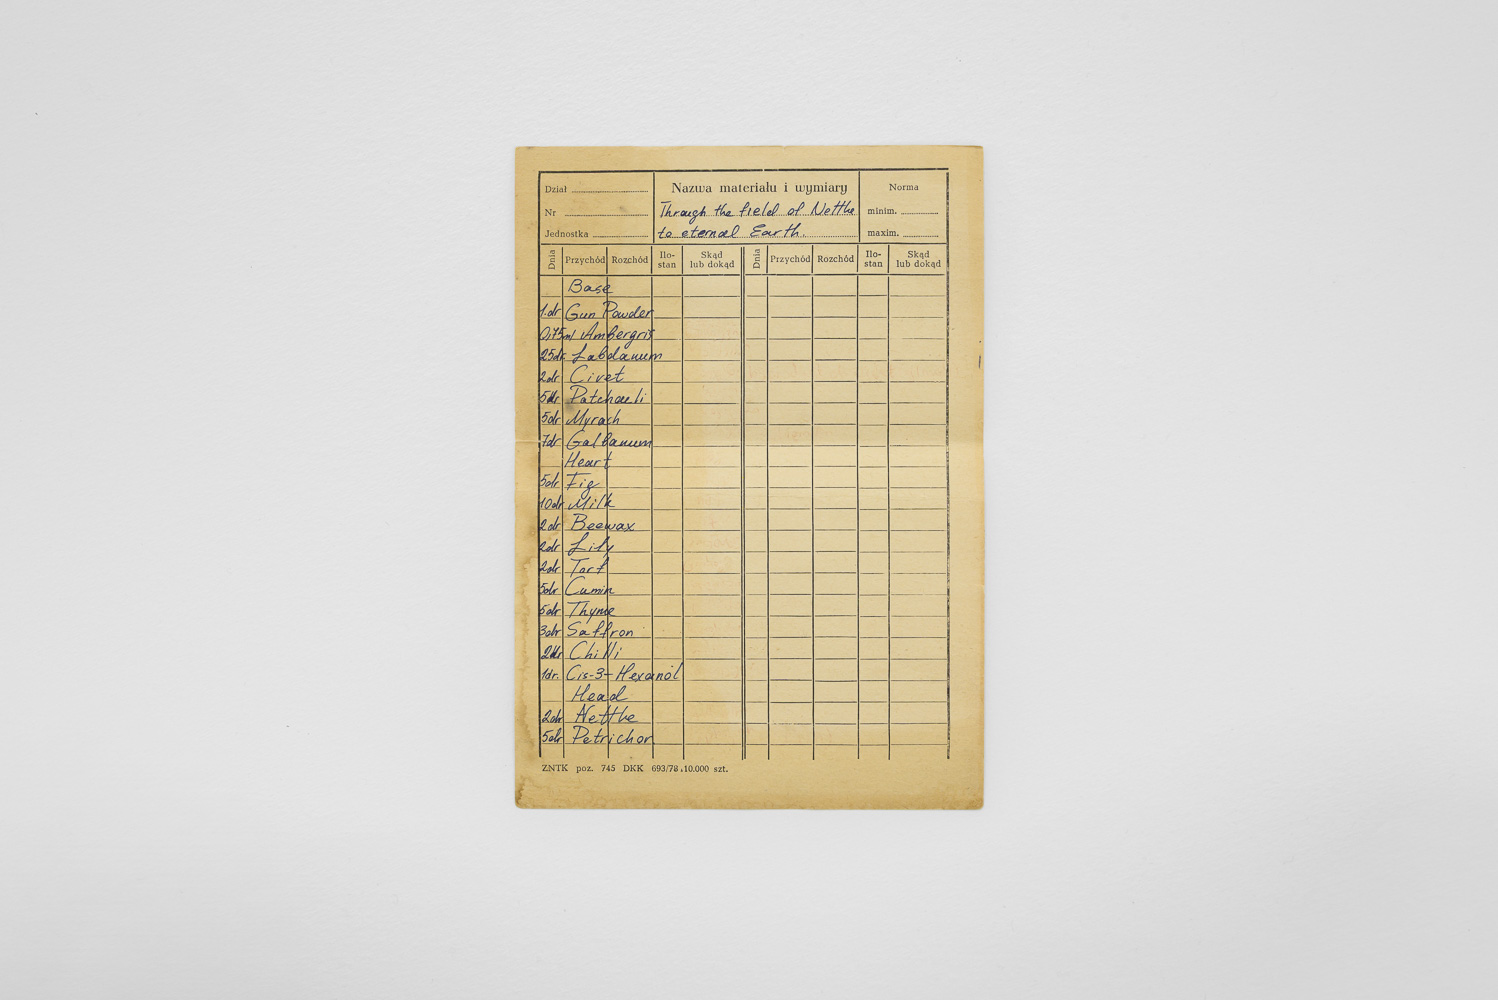 Dział
Nazwa materiału i wymiary
Norma
Nr
Through the field of Nettle
minim.
Jednostka
to eternal Earth.
maxim.
Dnia Przychód Rozchód Ilo-stan Skąd lub dokąd Dnia Przychód Rozchód Ilo-stan Skąd lub dokąd
Base
1 dr Gun Powder
0,75ml Ambergris
25dr Labdanum
2dr Civet
5dr Patchouli
5dr Myrach
7dr Galbanum
Heart
5dr Fig
10dr Milk
2dr Beewax
2dr Lily
2dr Tarf
5dr Cumin
5dr Thyme
3dr Saffron
2dr Chilli
1dr. Cis-3-Hexanol
Head
2dr Nettle
5dr Petrichor
ZNTK poz. 745 DKK 693/78 10.000 szt.